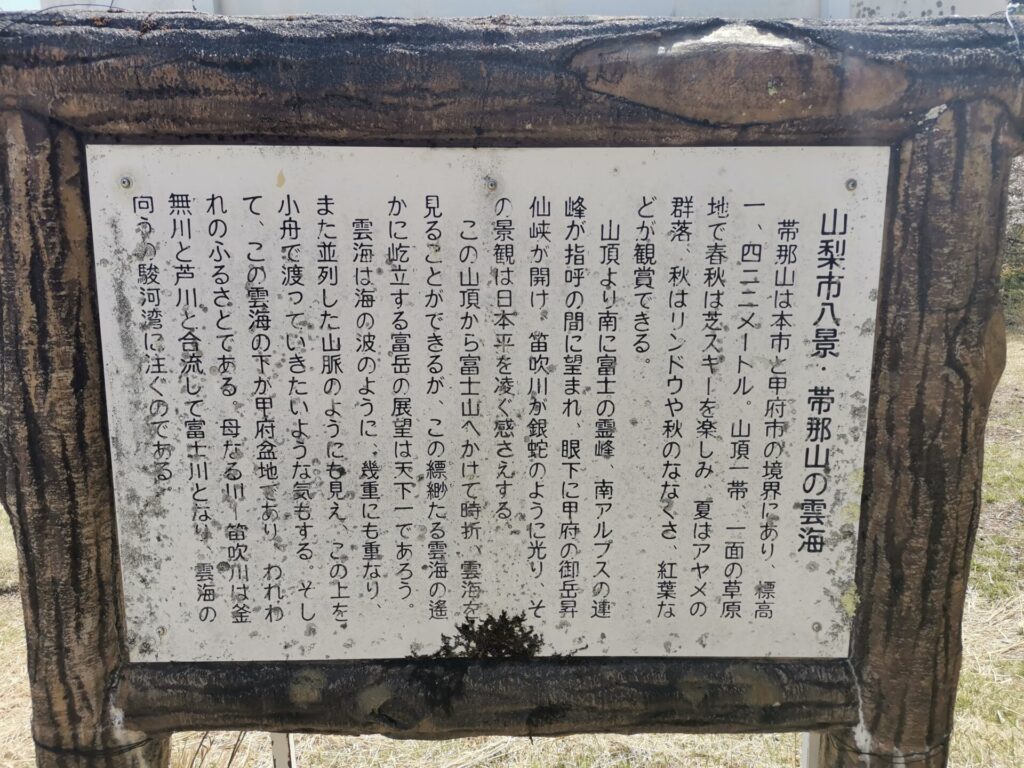 山梨市八景・帯那山の雲海
帯那山は本市と甲府市の境界にあり、標高
一、四二二メートル。山頂一帯、一面の草原
地で春秋は芝スキーを楽しみ、夏はアヤメの
群落、秋はリンドウや秋のななくさ、紅葉な
どが観賞できる。
山頂より南に富士の霊峰、南アルプスの連
峰が指呼の間に望まれ、眼下に甲府の御岳昇
仙峡が開け、笛吹川が銀蛇のように光り、そ
の景観は日本平を凌ぐ感さえする。
この山頂から富士山へかけて時折、雲海を
見ることができるが、この縹緲たる雲海の遙
かに屹立する富岳の展望は天下一であろう。
雲海は海の波のように、幾重にも重なり、
また並列した山脈のようにも見え、この上を
小舟で渡っていきたいような気もする。そし
て、この雲海の下が甲府盆地であり、われわ
れのふるさとである。母なる川―笛吹川は釜
無川と芦川と合流して富士川となり、雲海の
向うの駿河湾に注ぐのである。